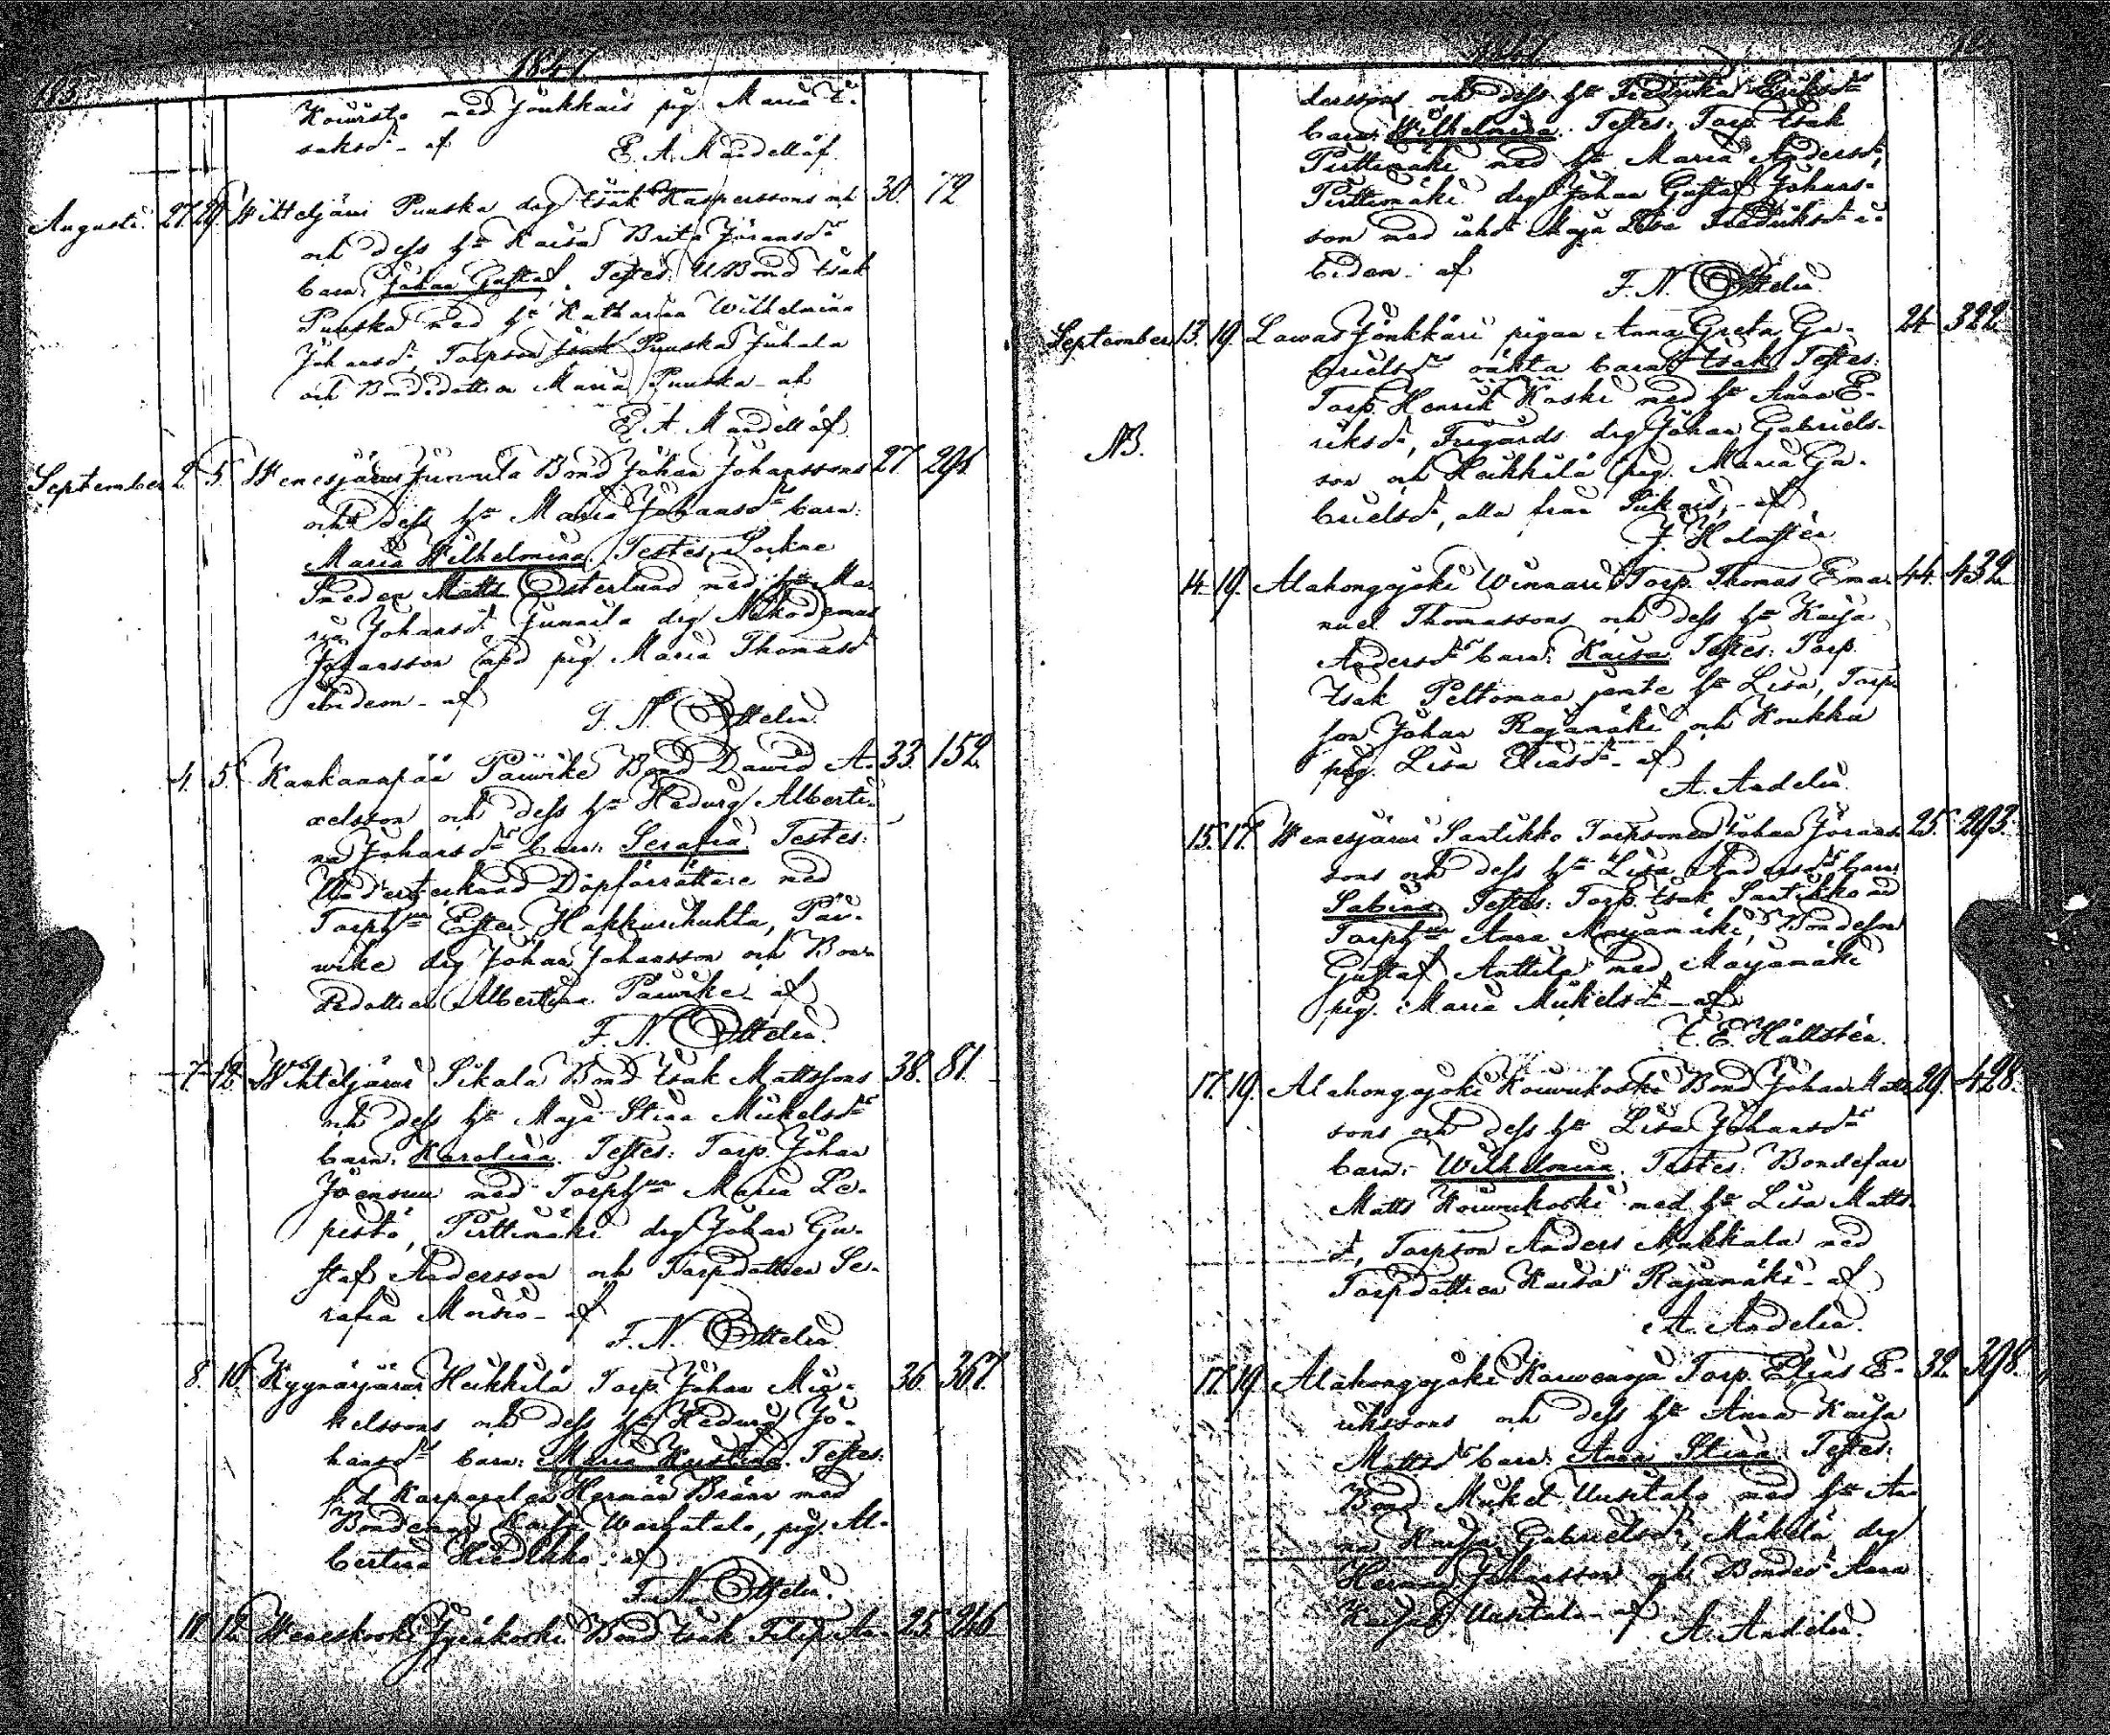 1847
Kourst. med Jönkkais pig. Maria I-
saksd:r af
E. A. Mandellöf.
Augusti. 27. 29. Wihteljärvi Puuska drg Isak Kasperssons och 30. 72
och dess h:u Kaisa Brita Göransd:r
barn: Johan Gustaf. Testes: UBond Isak
Puuska med h:u Katharina Wilhelmina
Johansd:r, Torpson Isak Puuska Juhala
och Bondedottren Maria Puuska - af
E. A. Mandellöf
September 2. 5. Wenesjärvi Junnila Bond. Johan Johanssons 27. 294
och dess h:u Maria Johansd:rs barn:
Maria Wilhelmina Testes: Sockne
Smeden Matts Österlund med h:u Ma-
ria Johansd:r Junnila drg Nikodemus
Johansson med pig. Maria Thomasd:r
ibidem - af
F. N. Ottelin.
4. 5. Kankaanpää Päivike Bond David A- 33. 152.
xelsson och dess h:u Hedvig Alberti-
na Johansd:rs barn: Serafia. Testes:
Undertecknad Döpförrättare med
Torph:un Ester Hakkurikuhta, Päi-
vike drg Johan Johansson och Bon-
dedottren Albertina Päivike - af
F. N. Ottelin.
7. 12. Wihteljärvi Sikala Bond Isak Mattssons 38. 81.
och dess h:u Maja Stina Mickelsd:rs
barn: Karolina. Testes: Torp. Johan
Joensuu med Torph:un Maria Le-
pistö, Pirttimäki drg Johan Gu-
staf Andersson och Torpdottren Se-
rafia Moisio - af
F. N. Ottelin
8. 10. Kyynärjärvi Heikkilä Torp. Johan Mic- 36. 367.
kelssons och dess h:u Hedvig Jo-
hansd:rs barn: Maria Kristina. Testes:
f.d. Karparalen Herman Bränn med
Bondenas Kaisa Warhatalo, pig. Al-
bertina Hiedikko - af
F. N. Ottelin.
11. 12. Weneskoski Jyräkoski Bond Isak Filip An- 25. 246
1847
derssons och dess h:u Fredrika Eriksd:rs
barn: Wilhelmina. Testes: Torp. Isak
Pirttimäki med h:u Maria Andersd:r,
Pirttimäki drg Johan Gustaf Johans-
son med inh:s Maja Lisa Fredriksd:r i-
bidem - af
F. N. Ottelin.
September 13. 19. Lavas Jönkkäri pigan Anna Greta Ga- 24. 322.
brielsd:rs oäkta barn Isak Testes:
Torp. Henrik Koski med h:u Anna E-
NB. riksd:r, Frigårds drg Johan Gabriels-
son och Heikkilä pig. Maria Ga-
brielsd:r, alla från Siikais, - af
J. Holmstén
14. 19. Alahongojoki Winnari Torp. Thomas Ema- 44. 432.
nuel Thomassons och dess h:u Kaisa
Andersd:rs barn: Kaisa Testes: Torp.
Isak Peltomaa jemte h:u Lisa, Torp-
son Johan Rajamäki och Koukku
pig. Lisa Eliasd:r - af
A. Andelin.
15. 17. Wenesjärvi Santikko Torpsonen Johan Jörans- 25. 293.
sons och dess h:u Lisa Andersd:rs barn
Sabina Testes: Torp. Isak Santikko med
Torph:un Anna Marjamäki, Bondeson
Gustaf Anttila med Marjamäki
pig. Maria Mickelsd:r - af
C. E. Hällstén.
17. 19. Alahongojoki Kourukoski Bond Johan Matts- 29. 428.
sons och dess h:u Lisa Johansd:rs
barn: Wilhelmina. Testes: Bondefar
Matts Kourukoski med h:u Lisa Matts-
d:r, Torpson Anders Makkala med
Torpdottren Kaisa Rajamäki - af
A. Andelin.
17. 19. Alahongojoki Karvonoja Torp. Elias E- 32. 398.
rikssons och dess h:u Anna Kaisa
Mattsd:rs barn: Anna Stina. Testes:
Bond Mickel Uusitalo med h:u An-
na Kaisa Gabrielsd:r, Mäkelä drg
Herman Johansson och Bonded:r Anna
Kaisa Uusitalo - af
A. Andelin.